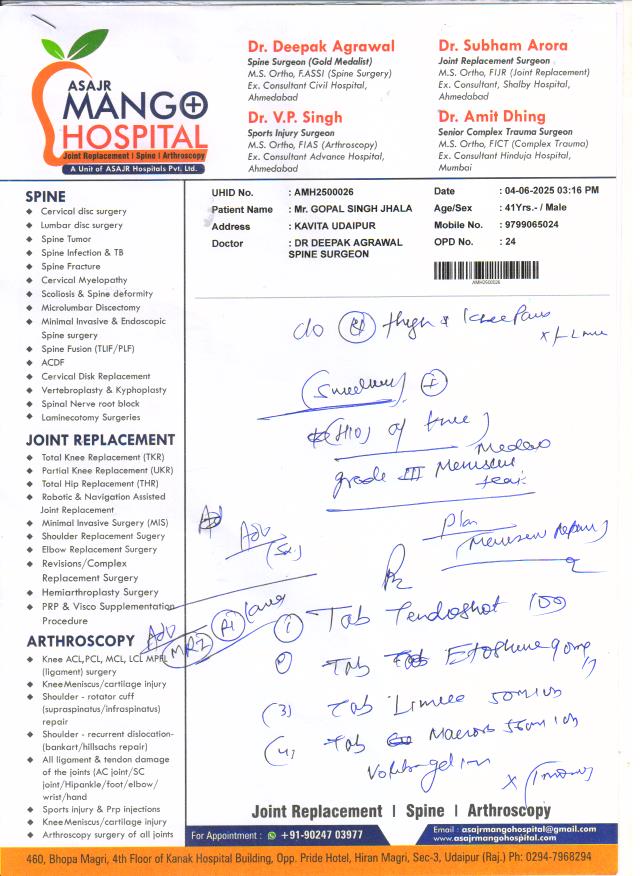 ASAJR
MANGO
HOSPITAL
Joint Replacement | Spine | Arthroscopy
A Unit of ASAJR Hospitals Pvt. Ltd.
Dr. Deepak Agrawal
Spine Surgeon (Gold Medalist)
M.S. Ortho, F.ASSI (Spine Surgery)
Ex. Consultant Civil Hospital,
Ahmedabad
Dr. Subham Arora
Joint Replacement Surgeon
M.S. Ortho, FIJR (Joint Replacement)
Ex. Consultant, Shalby Hospital,
Ahmedabad
Dr. V.P. Singh
Sports Injury Surgeon
M.S. Ortho, FIAS (Arthroscopy)
Ex. Consultant Advance Hospital,
Ahmedabad
Dr. Amit Dhing
Senior Complex Trauma Surgeon
M.S. Ortho, FICT (Complex Trauma)
Ex. Consultant Hinduja Hospital,
Mumbai
UHID No. : AMH2500026
Patient Name : Mr. GOPAL SINGH JHALA
Address : KAVITA UDAIPUR
Doctor : DR DEEPAK AGRAWAL
SPINE SURGEON
Date : 04-06-2025 03:16 PM
Age/Sex : 41Yrs.- / Male
Mobile No. : 9799065024
OPD No. : 24
AMH2500026
SPINE
Cervical disc surgery
Lumbar disc surgery
Spine Tumor
Spine Infection & TB
Spine Fracture
Cervical Myelopathy
Scoliosis & Spine deformity
Microlumbar Discectomy
Minimal Invasive & Endoscopic
Spine surgery
Spine Fusion (TLIF/PLF)
ACDF
Cervical Disk Replacement
Vertebroplasty & Kyphoplasty
Spinal Nerve root block
Laminecotomy Surgeries
JOINT REPLACEMENT
Total Knee Replacement (TKR)
Partial Knee Replacement (UKR)
Total Hip Replacement (THR)
Robotic & Navigation Assisted
Joint Replacement
Minimal Invasive Surgery (MIS)
Shoulder Replacement Sugery
Elbow Replacement Surgery
Revisions/Complex
Replacement Surgery
Hemiarthroplasty Surgery
PRP & Visco Supplementation
Procedure
ARTHROSCOPY
Knee ACL,PCL, MCL, LCL MPFL
(ligament) surgery
KneeMeniscus/cartilage injury
Shoulder - rotator cuff
(supraspinatus/infraspinatus)
repair
Shoulder - recurrent dislocation-
(bankart/hillsachs repair)
All ligament & tendon damage
of the joints (AC joint/SC
joint/Hipankle/foot/elbow/
wrist/hand
Sports injury & Prp injections
KneeMeniscus/cartilage injury
Arthroscopy surgery of all joints
c/o Rt thigh & knee Pain
(Swelling) +
(H/o) of knee
grade III Meniscus
tear
Plan
(Meniscus Repair)
Adv
Adv
MRI Rt
Rx
(1) Tab Tendoshot 100
(2) Tab Etoshine 90mg
(3) Tab
(4) Tab
gel
Joint Replacement | Spine | Arthroscopy
For Appointment : +91-90247 03977
Email : asajrmangohospital@gmail.com
www.asajrmangohospital.com
460, Bhopa Magri, 4th Floor of Kanak Hospital Building, Opp. Pride Hotel, Hiran Magri, Sec-3, Udaipur (Raj.) Ph: 0294-7968294